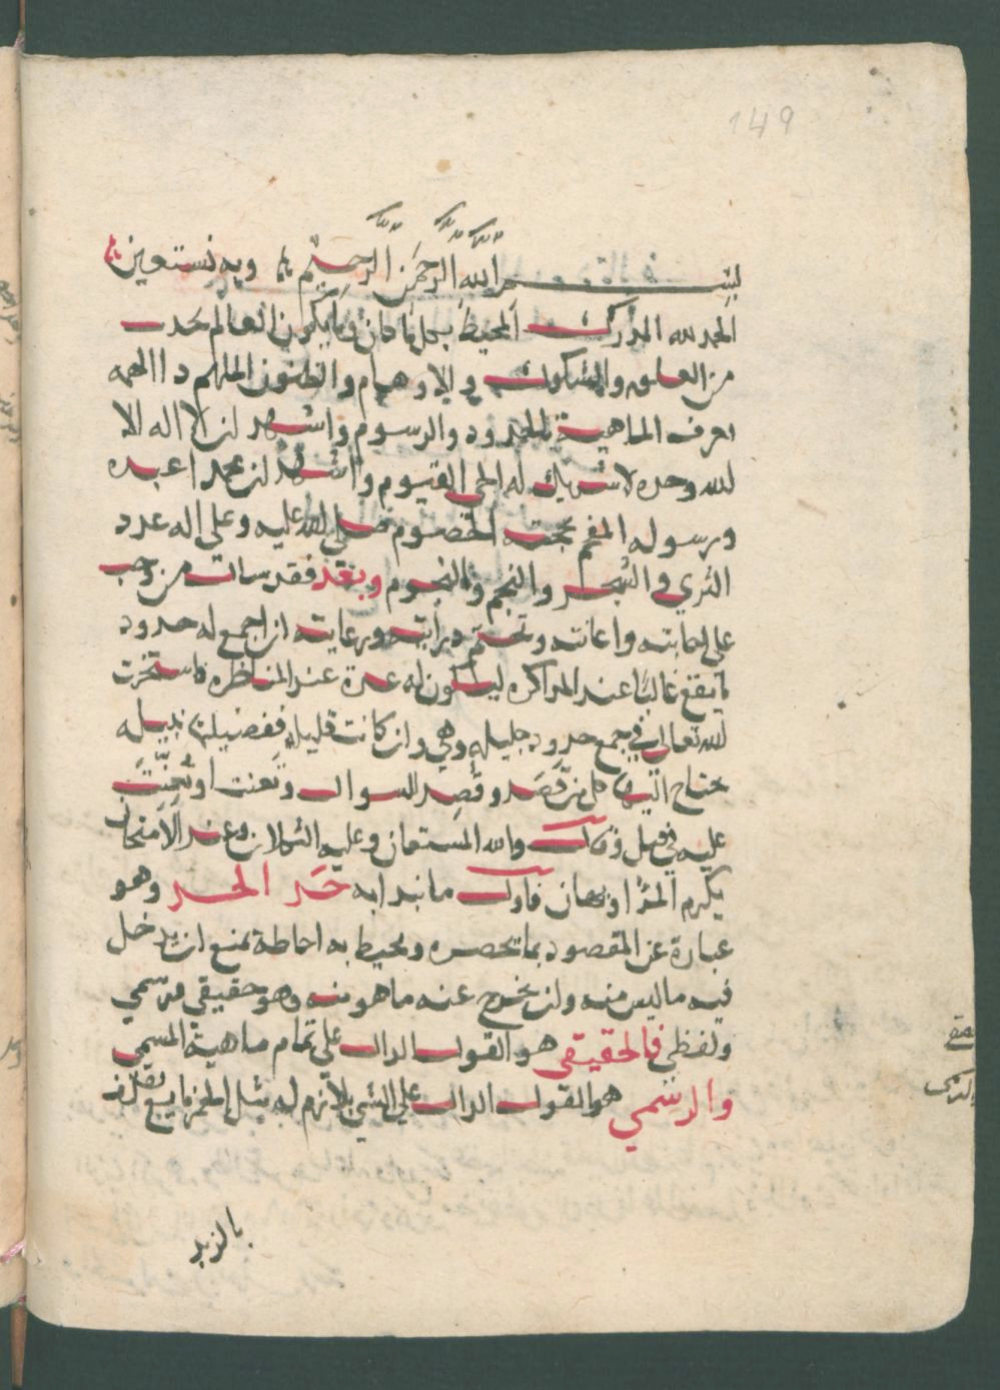 149
بسم الله الرحمن الرحيم وبه نستعين
الحمد لله المدرك المحيط بكل ما كان وما يكون العالم بحدث
من العلوم والشكوك والاوهام والظنون الملهم
بعرف الماهية بالحدود والرسوم واشهد ان لا اله الا
لله وحده لا شريك له الحي القيوم واشهد ان محمدا عبده
ورسوله المفحم بحجته الخصوم صلى لله عليه وعلى اله عدد
الثرى والشجر والنجم والنجوم وبعد فقد سالت من وجب
على اجابته واعانته وتحتم درايته ورعايته ان اجمع له حدود
ما يقع غالبا عند المذاكره ليكون له عدة عند المناظره فاستخرت
لله تعالى في جمع حدود جليله وهي وان كانت قليله ففضيلتها نبيله
يحتاج اليها كل من قصد وقصد السوال وتعنت او تعنت
عليه في قيل وقال والله المستعان وعليه التكلان وعند الامتحان
يكرم المرٔ او يهان فاول ما نبدا به حد الحد وهو
عبارة عن المقصود بما يحصره ويحيط به احاطة تمنع ان يدخل
فيه ما ليس منه وان يخرج عنه ما هو منه وهو حقيقي ورسمي
ولفظي فالحقيقي هو القول الدال على تمام ماهية المسمى
والرسمي هو القول الدال على الشي بلازم له مثل الخمر مايع يقذف
بالزبد